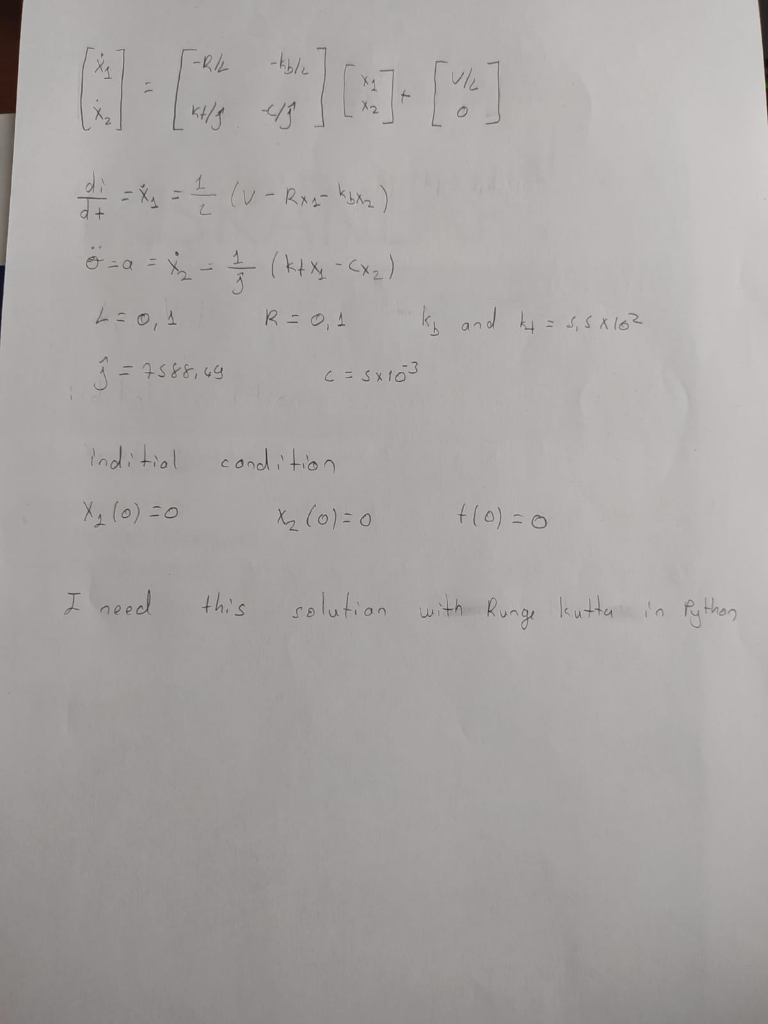 [ẋ1 ẋ2] = [-R/L -kb/L kt/ĵ -c/ĵ] [x1 x2] + [V/L 0]
di/dt = ẋ1 = 1/L (V - Rx1 - kbx2)
θ̈ = a = ẋ2 = 1/ĵ (ktx1 - cx2)
L = 0,1 R = 0,1 kb and kt = 5,5x10^2
ĵ = 7588,49 c = 5x10^-3
inditial condition
X1(0) = 0 X2(0) = 0 t(0) = 0
I need this solution with Runge kutta in Python